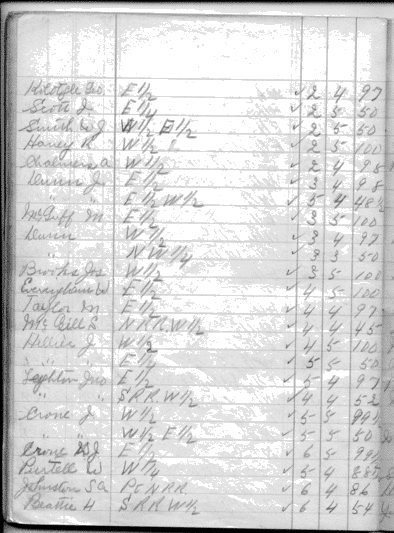 E 1/2 ✓ 2 4 97
Scott J. E 1/4 ✓ 2 5 50
Smith W J W 1/2 E 1/2 ✓ 2 5 50
Haney R W 1/2 " ✓ 2 5 100
Chalmers A W 1/2 ✓ 2 4 98
Dunn J. E 1/2 ✓ 3 4 98
" " E 1/2 W 1/2 ✓ 5 4 48 1/2
McGuff M E 1/2 ✓ 3 5 100
Dunn W 1/2 ✓ 3 4 97
" N W 1/4 ✓ 3 3 50
Brooks Jos W 1/2 ✓ 3 5 100
Everingham W E 1/2 ✓ 4 5 100
Taylor M E 1/2 ✓ 4 4 97
McGill S N R R W 1/2 ✓ 4 4 45
Hillier J W 1/2 ✓ 4 5 100
" " E 1/4 ✓ 5 5 50
Leighton Jno E 1/2 ✓ 5 4 97
" " S R R W 1/2 ✓ 4 4 52
Crone J W 1/2 ✓ 5 5 99 1/2
" " W 1/2 E 1/2 ✓ 5 5 50
Crone W J E 1/2 ✓ 6 5 99 1/2
Purtell W W 1/4 ✓ 5 4
Johnston S A Pt N R R ✓ 6 4 86
Beattie H S R R W 1/2 ✓ 6 4 54